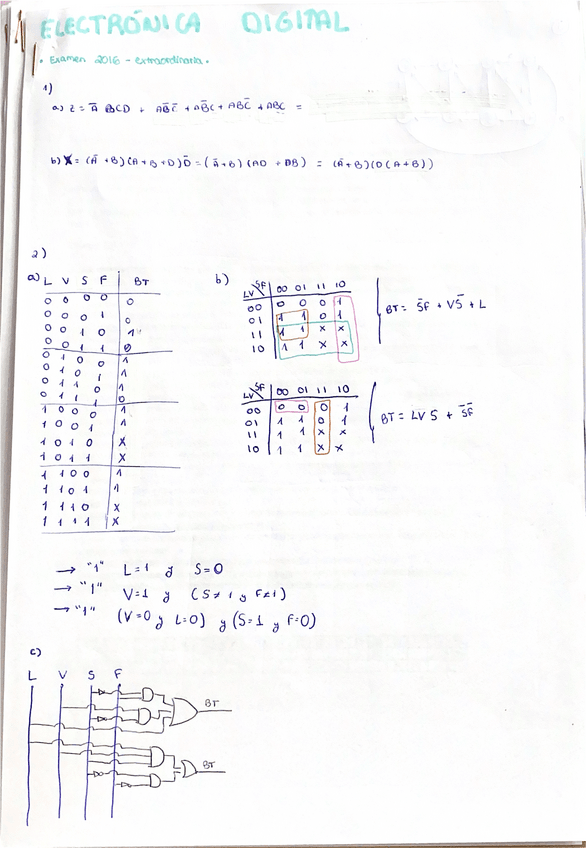 ELECTRÓNICA DIGITAL
• Examen 2016 - extraordinaria •
1)
a) Z = A̅ BCD + AB̅C̅ + AB̅C + ABC̅ + ABC =
b) X = (A̅ + B)(A + B + D)D̅ = (A̅ + B)(AD + DB) = (A̅ + B)(D(A + B))
2)
a) L V S F | BT
0 0 0 0 | 0
0 0 0 1 | 0
0 0 1 0 | 1
0 0 1 1 | 0
0 1 0 0 | 1
0 1 0 1 | 1
0 1 1 0 | 1
0 1 1 1 | 0
1 0 0 0 | 1
1 0 0 1 | 1
1 0 1 0 | X
1 0 1 1 | X
1 1 0 0 | 1
1 1 0 1 | 1
1 1 1 0 | X
1 1 1 1 | X
b) LV SF 00 01 11 10
00 0 0 0 1
01 1 1 0 1
11 1 1 X X
10 1 1 X X
BT = S̅F + VS̅ + L
LV SF 00 01 11 10
00 0 0 0 1
01 1 1 0 1
11 1 1 X X
10 1 1 X X
BT = LVS + S̅F̅
→ "1" L=1 y S=0
→ "1" V=1 y (S≠1 y F≠1)
→ "1" (V=0 y L=0) y (S=1 y F=0)
c)
L V S F
BT
BT